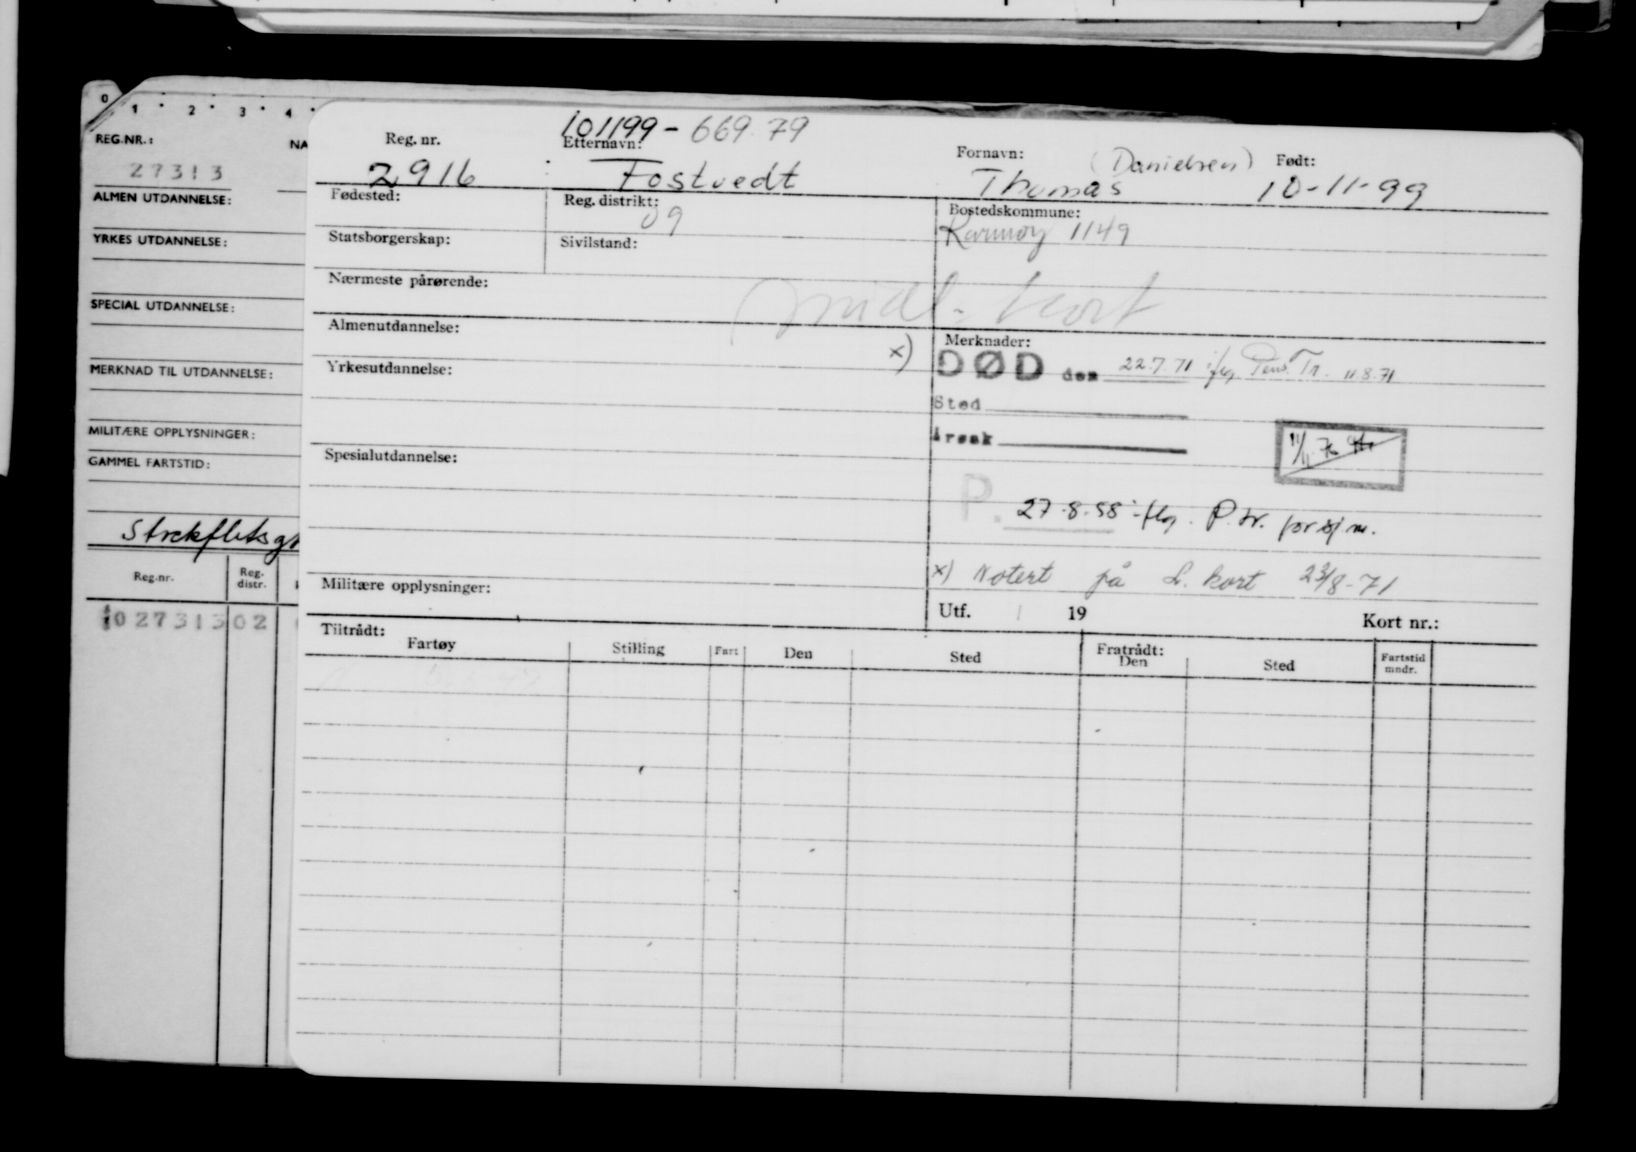 0 1 2 3 4
REG.NR.: NA
27313
ALMEN UTDANNELSE:
YRKES UTDANNELSE:
SPECIAL UTDANNELSE:
MERKNAD TIL UTDANNELSE:
MILITÆRE OPPLYSNINGER:
GAMMEL FARTSTID:
Reg.nr. Reg. distr.
027313 02
101199-669 79
Reg. nr. Etternavn: Fornavn: (Danielsen) Født:
2916 Fostvedt Thomas 10-11-99
Fødested: Reg. distrikt: Bostedskommune:
09 Karmøy 1149
Statsborgerskap: Sivilstand:
Nærmeste pårørende:
midl. kort
Almenutdannelse: Merknader:
x) DØD den 22.7.71 iflg. Pens. Tr. 11.8.71
Yrkesutdannelse:
Sted
Årsak
Spesialutdannelse:
P. 27.8.58 iflg. P.tr. for sjm.
x) Notert på L. kort 23/8-71
Militære opplysninger:
Utf. 19 Kort nr.:
Tiltrådt: Fratrådt:
Fartøy Stilling Fart Den Sted Den Sted Fartstid mndr.